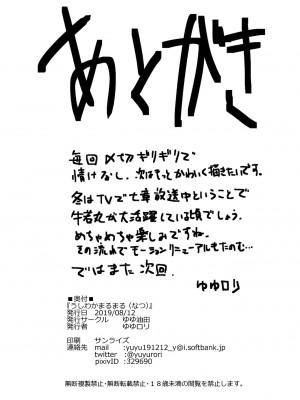 あとがき
毎回〆切ギリギリで
情けなし。次はもっとかわいく描きたいです。
冬はTVで七章放送中ということで
牛若丸が大活躍している頃でしょう。
めちゃめちゃ楽しみですね。
その流れでモーションリニューアルもたのむ…
ではまた次回。
ゆゆロリ
■奥付■
『うしわかまるまる(なつ)』
発行日 2019/08/12
発行サークル ゆゆ油田
発行者 ゆゆロリ
印刷 サンライズ
連絡先 mail :yuyu191212_y@i.softbank.jp
twitter :@yuyurori
pixivID :329690
無断複製禁止・無断転載禁止・18歳未満の閲覧を禁止します。